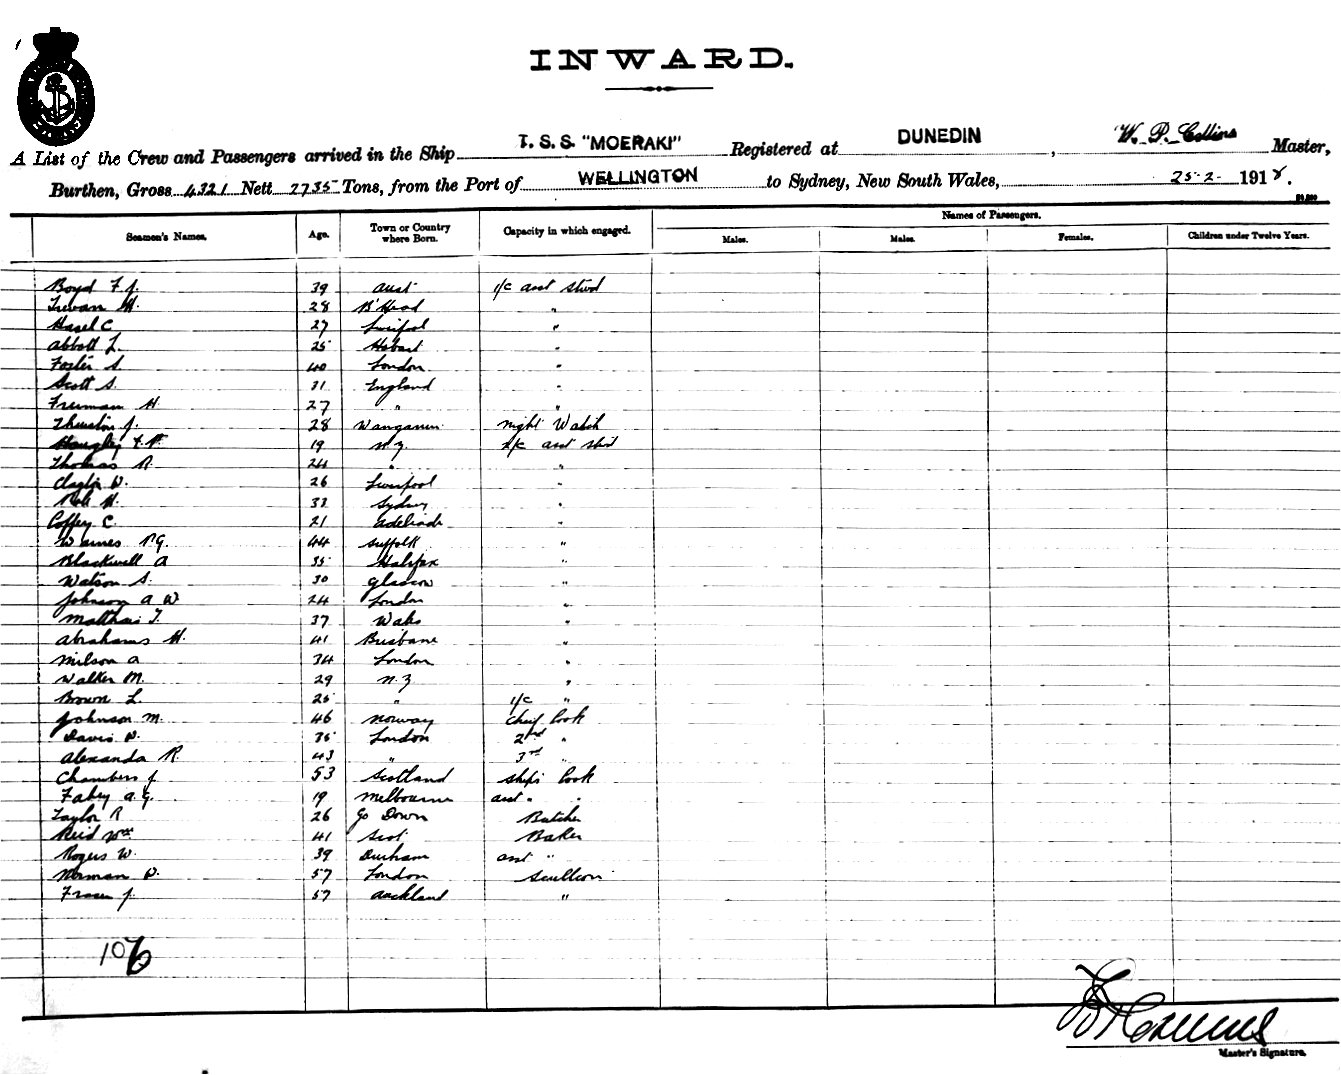 INWARD.
A List of the Crew and Passengers arrived in the Ship T. S. S. "MOERAKI" Registered at DUNEDIN, W. P. Collins Master,
Burthen, Gross 4321 Nett 2735 Tons, from the Port of WELLINGTON to Sydney, New South Wales, 25-2- 1918.
Names of Passengers.
Seamen's Names. Age. Town or Country where Born. Capacity in which engaged. Males. Males. Females. Children under Twelve Years.
Boyd F J. 39 Aust 1/c asst stwd
H. 28 B'Head "
Hazel C 27 Liverpool "
Abbott L. 25 Hobart "
Foster S. 40 London "
Scott S. 31 England "
Freeman H 27 " "
Thurston J. 28 Wanganui night Watch
19 N.Z. 2/c asst stwd
Thomas R. 24 " "
Clayton W. 26 Liverpool "
H. 33 Sydney "
Coffey C. 21 Adelaide "
Warnes P.G. 44 Suffolk "
Blackwell A 35 Halifax "
Watson S. 30 Glasgow "
Johnson A W 24 London "
Matthews T. 37 Wales "
Abrahams H. 41 Brisbane "
Milson A 34 London "
Walker M. 29 N.Z "
Brown L. 25 " 1/c "
Johnson M. 46 Norway Chief Cook
Davis W. 35 London 2nd "
Alexander R. 43 " 3rd "
Chambers J 53 Scotland Ships Cook
Fahey A. G. 19 Melbourne asst " "
Taylor R 26 Co Down Butcher
Reid Wm 41 Scot Baker
Rogers W. 39 Durham asst "
Norman W. 57 London Scullion
Fraser J. 57 Auckland "
106
Master's Signature.